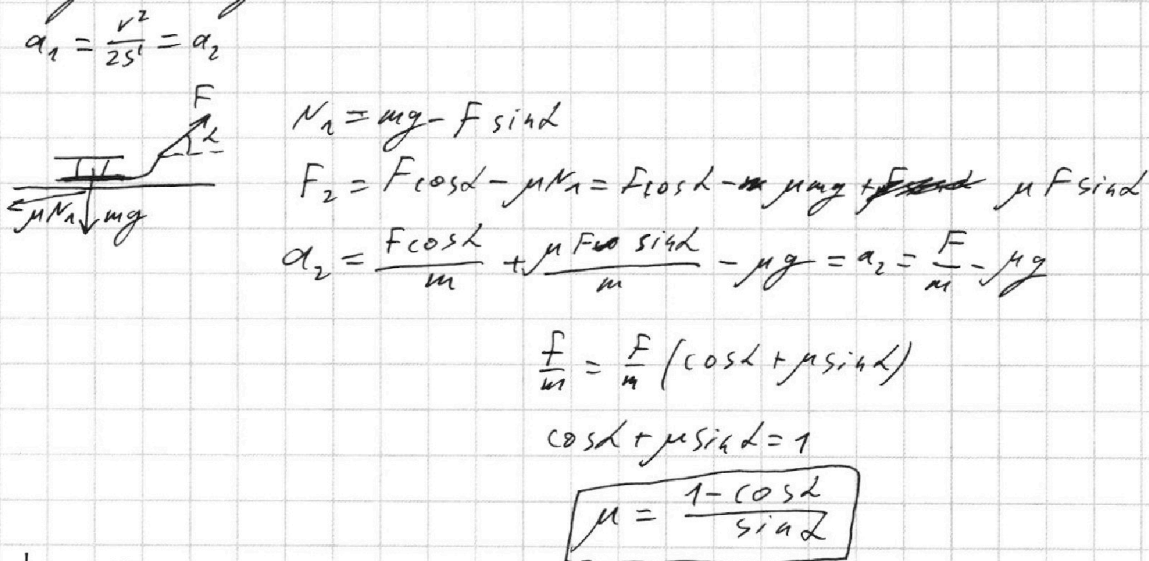 a₁ = v²/2S' = a₂
F
α
μN₁ mg
N₁ = mg - F sinα
F₂ = F cosα - μN₁ = F cosα - μmg + μF sinα
a₂ = F cosα/m + μF sinα/m - μg = a₂ = F/m - μg
F/m = F/m (cosα + μ sinα)
cosα + μ sinα = 1
μ = (1 - cosα)/sinα